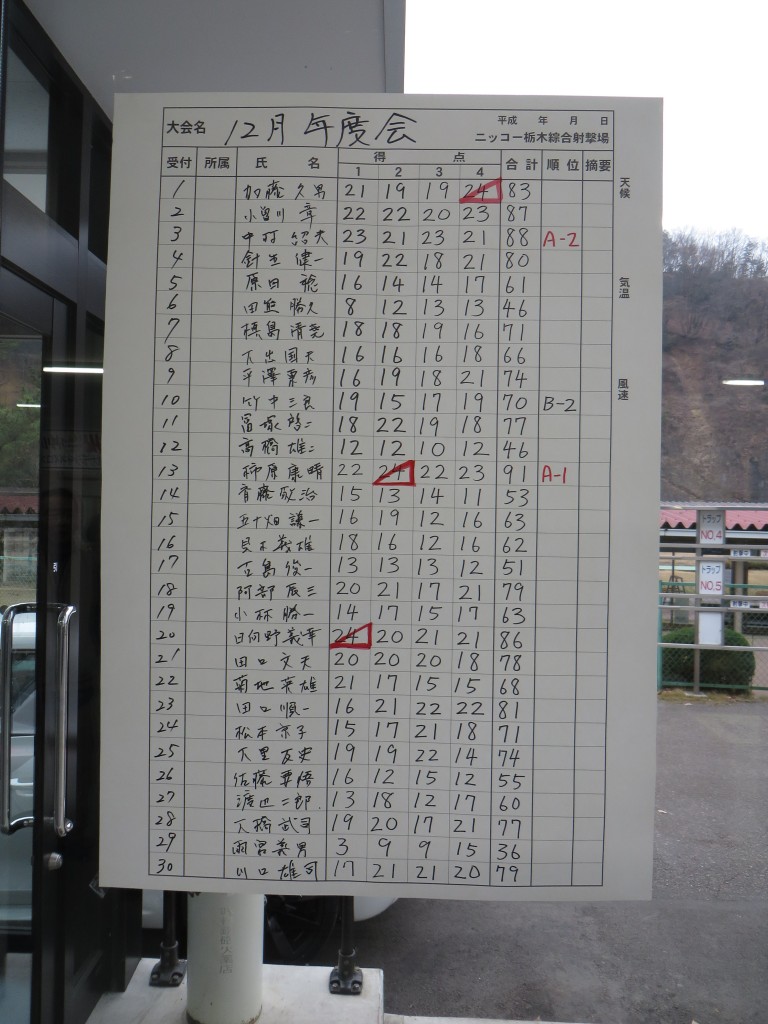 大会名 12月 年度会 平成 年 月 日
ニッコー栃木綜合射撃場
受付 所属 氏 名 得 点 合計 順位 摘要
1 2 3 4
1 加藤 久男 21 19 19 24 83
2 小曽川 章 22 22 20 23 87
3 中村 紹夫 23 21 23 21 88 A-2
4 針生 健一 19 22 18 21 80
5 原田 稔 16 14 14 17 61
6 田熊 勝久 8 12 13 13 46
7 槙島 清 18 18 19 16 71
8 大出 国夫 16 16 16 18 66
9 平澤 16 19 18 21 74
10 竹中 三良 19 15 17 19 70 B-2
11 冨塚 啓二 18 22 19 18 77
12 高橋 雄二 12 12 10 12 46
13 柿原 康晴 22 24 22 23 91 A-1
14 齊藤 政治 15 13 14 11 53
15 五十畑 謙一 16 19 12 16 63
16 義雄 18 16 12 16 62
17 古島 俊一 13 13 13 12 51
18 阿部 辰三 20 21 17 21 79
19 小林 勝一 14 17 15 17 63
20 日向野 義幸 24 20 21 21 86
21 田口 文夫 20 20 20 18 78
22 菊地 英雄 21 17 15 15 68
23 田口 順一 16 21 22 22 81
24 松本 京子 15 17 21 18 71
25 大里 友史 19 19 22 14 74
26 佐藤 要悟 16 12 15 12 55
27 渡辺 二郎 13 18 12 17 60
28 大橋 武司 19 20 17 21 77
29 雨宮 美男 3 9 9 15 36
30 川口 雄司 17 21 21 20 79
天候
気温
風速
トラップ
NO.4
トラップ
NO.5